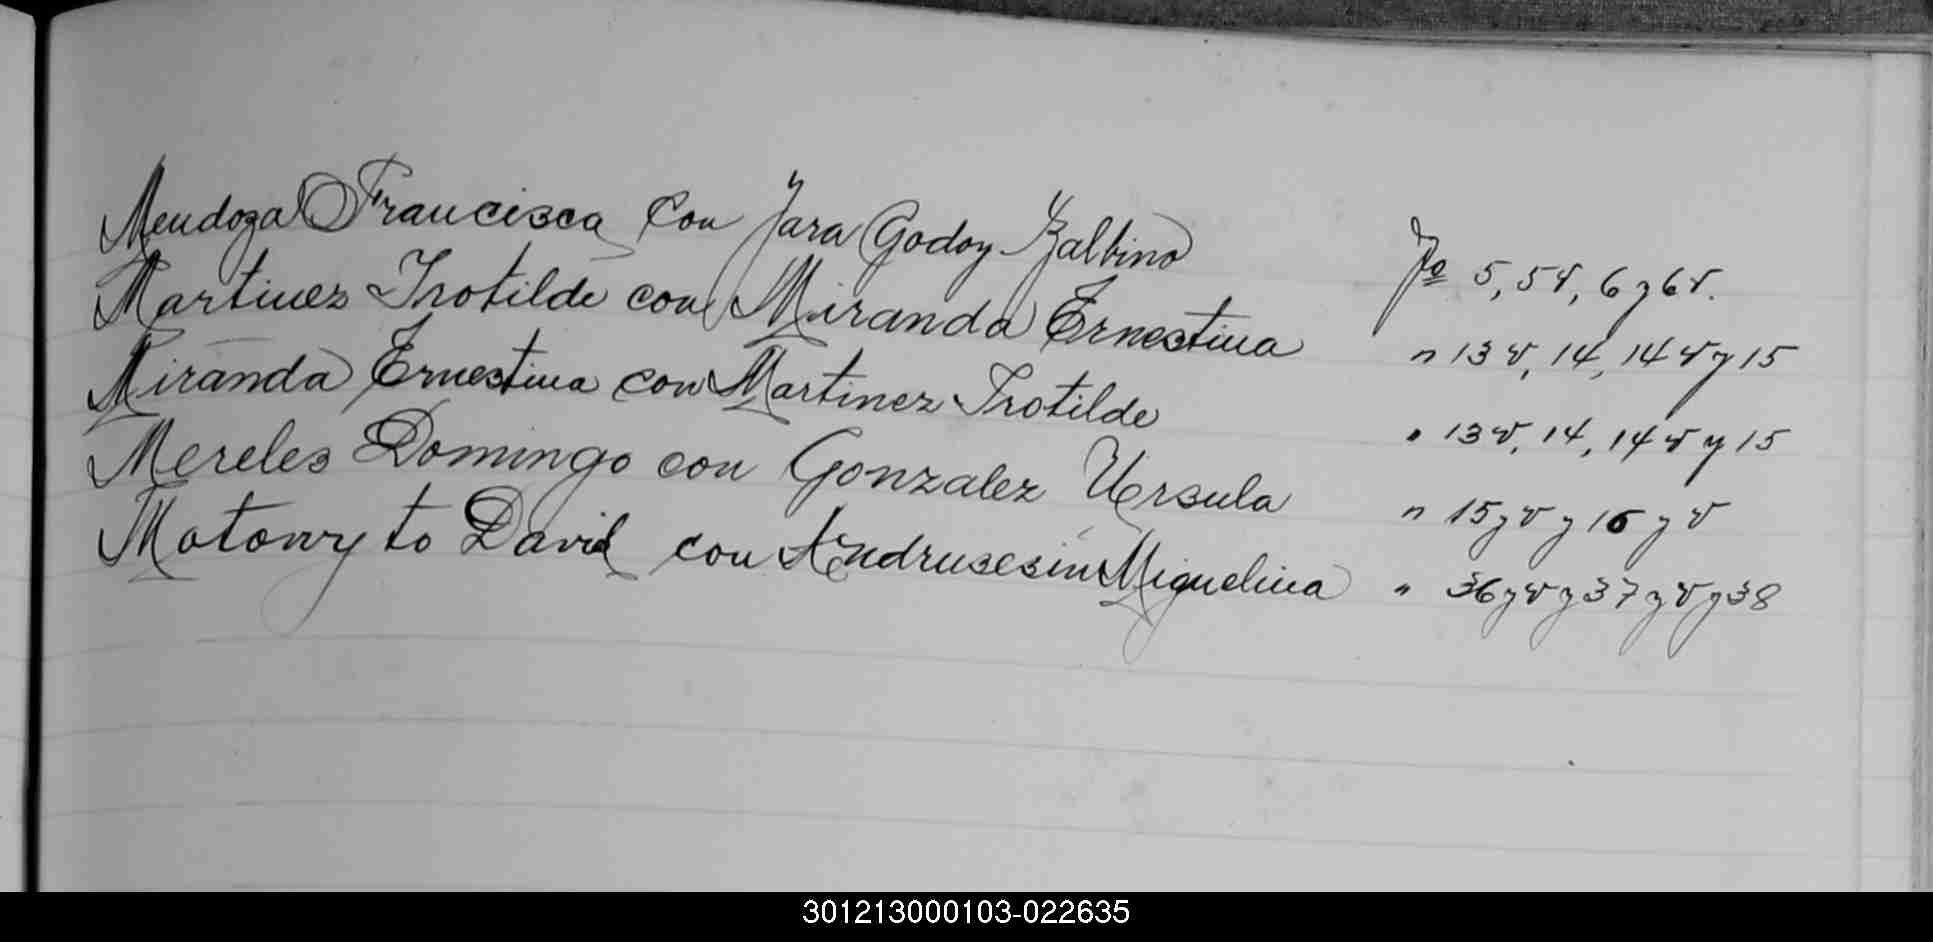 Mendoza Francisca con Jara Godoy Balbino Fº 5, 5v, 6 y 6v.
Martinez Trotilde con Miranda Ernestina " 13v, 14, 14v y 15
Miranda Ernestina con Martinez Trotilde " 13v, 14, 14v y 15
Mereles Domingo con Gonzalez Ursula " 15 y v y 16 y v
to David con Miguelina " 36 y v y 37 y v y 38
301213000103-022635